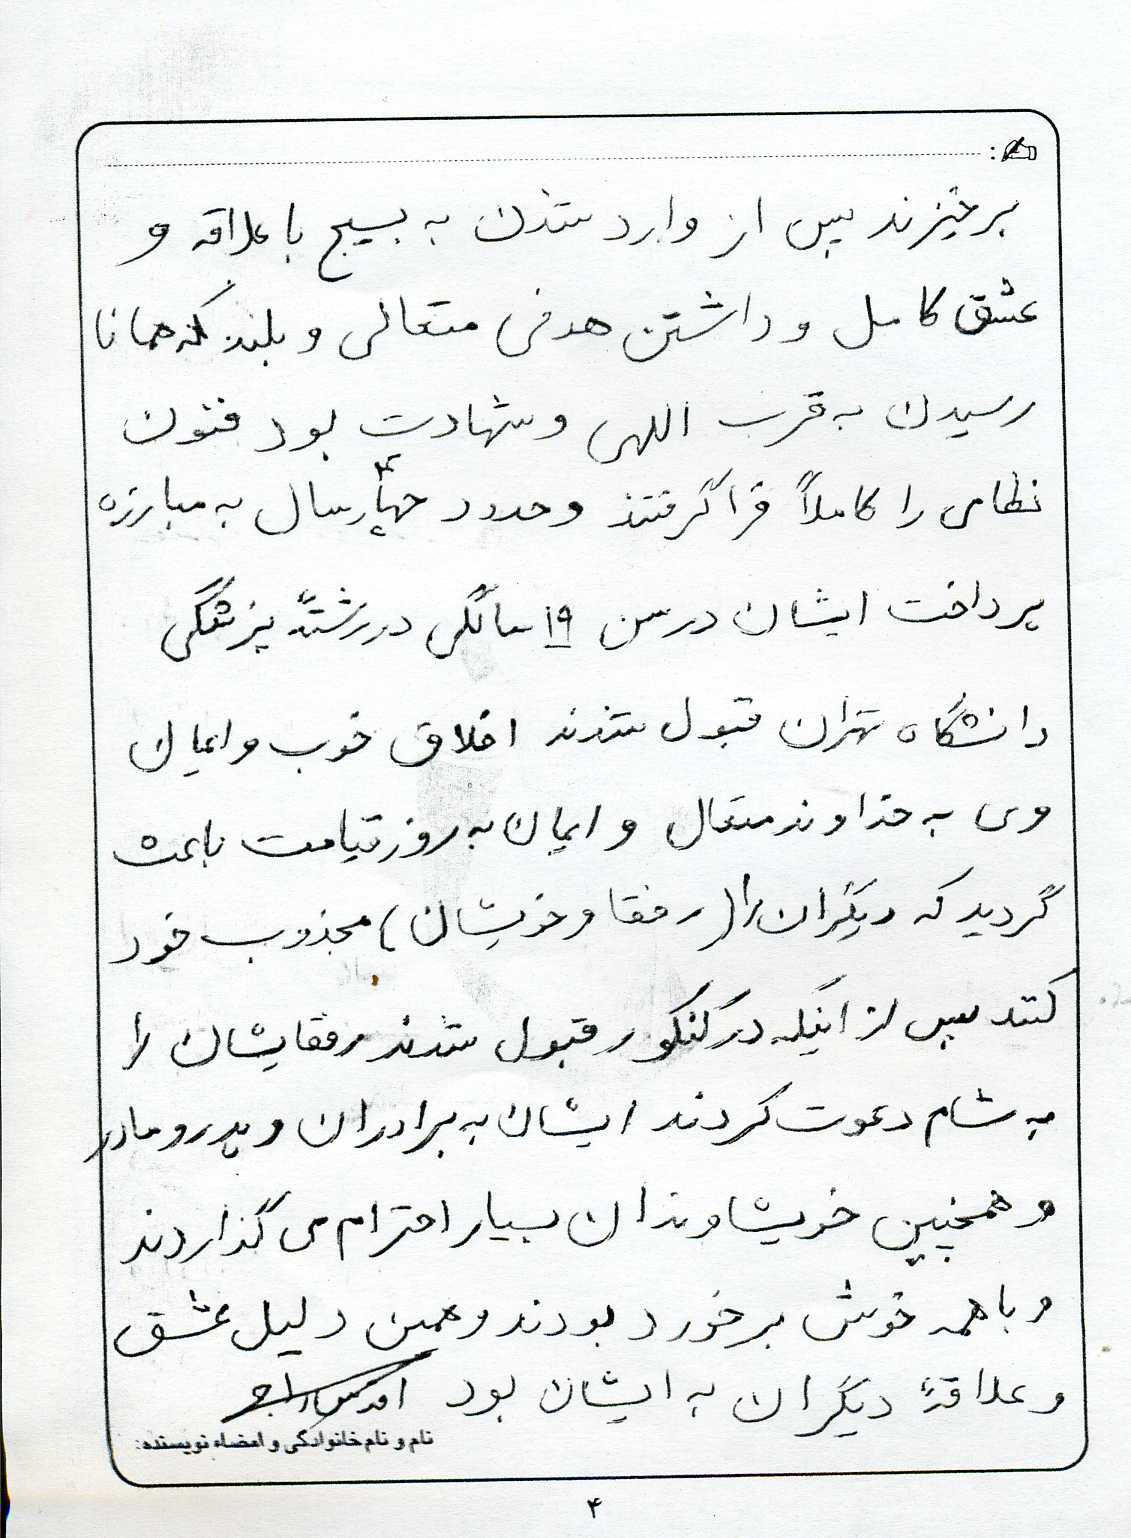 برخیزند پس از وارد شدن به بسیج با علاقه و
عشق کامل و داشتن هدفی متعالی و بلند که همانا
رسیدن به قرب اللهی و شهادت بود فنون
نظامی را کاملاً فرا گرفتند و حدود چهار سال به مبارزه
پرداخت ایشان در سن ۱۹ سالگی در رشتهٔ پزشگی
دانشگاه تهران قبول شدند اخلاق خوب و ایمان
وی به خداوند متعال و ایمان به روز قیامت باعث
گردید که دیگران را (رفقا و خویشان) مجذوب خود
کنند پس از اینکه در کنکور قبول شدند رفقایشان را
به شام دعوت کردند ایشان به برادران و پدر و مادر
و همچنین خویشاوندان بسیار احترام می گذاردند
و با همه خوش برخورد بودند و همین دلیل عشق
و علاقهٔ دیگران به ایشان بود
نام و نام خانوادگی و امضاء نویسنده:
۴